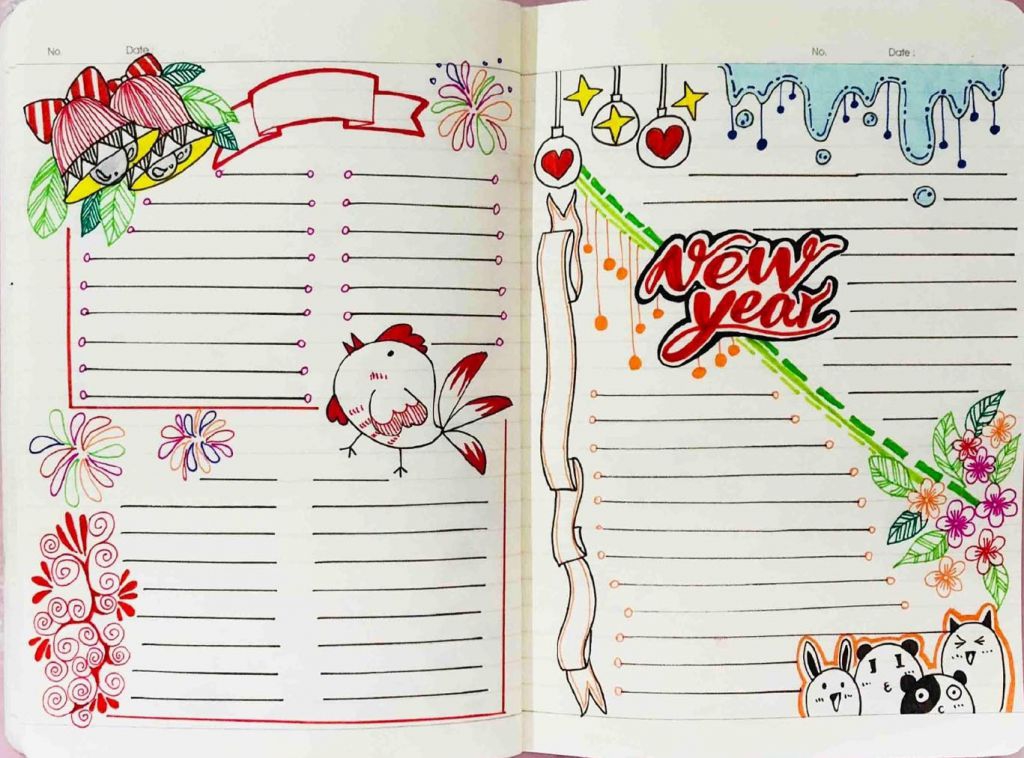 No.
Date :
No.
Date :
New
year